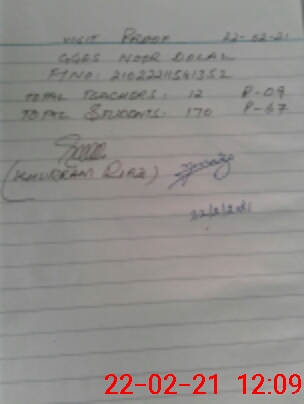 VISIT PROOF 22-02-21
GGES NOOR DALAL
FTNO: 21022211541352
TOTAL TEACHERS: 12 P-09
TOTAL STUDENTS: 170 P-67
(KHURRAM RIAZ)
22/2/21
22-02-21 12:09